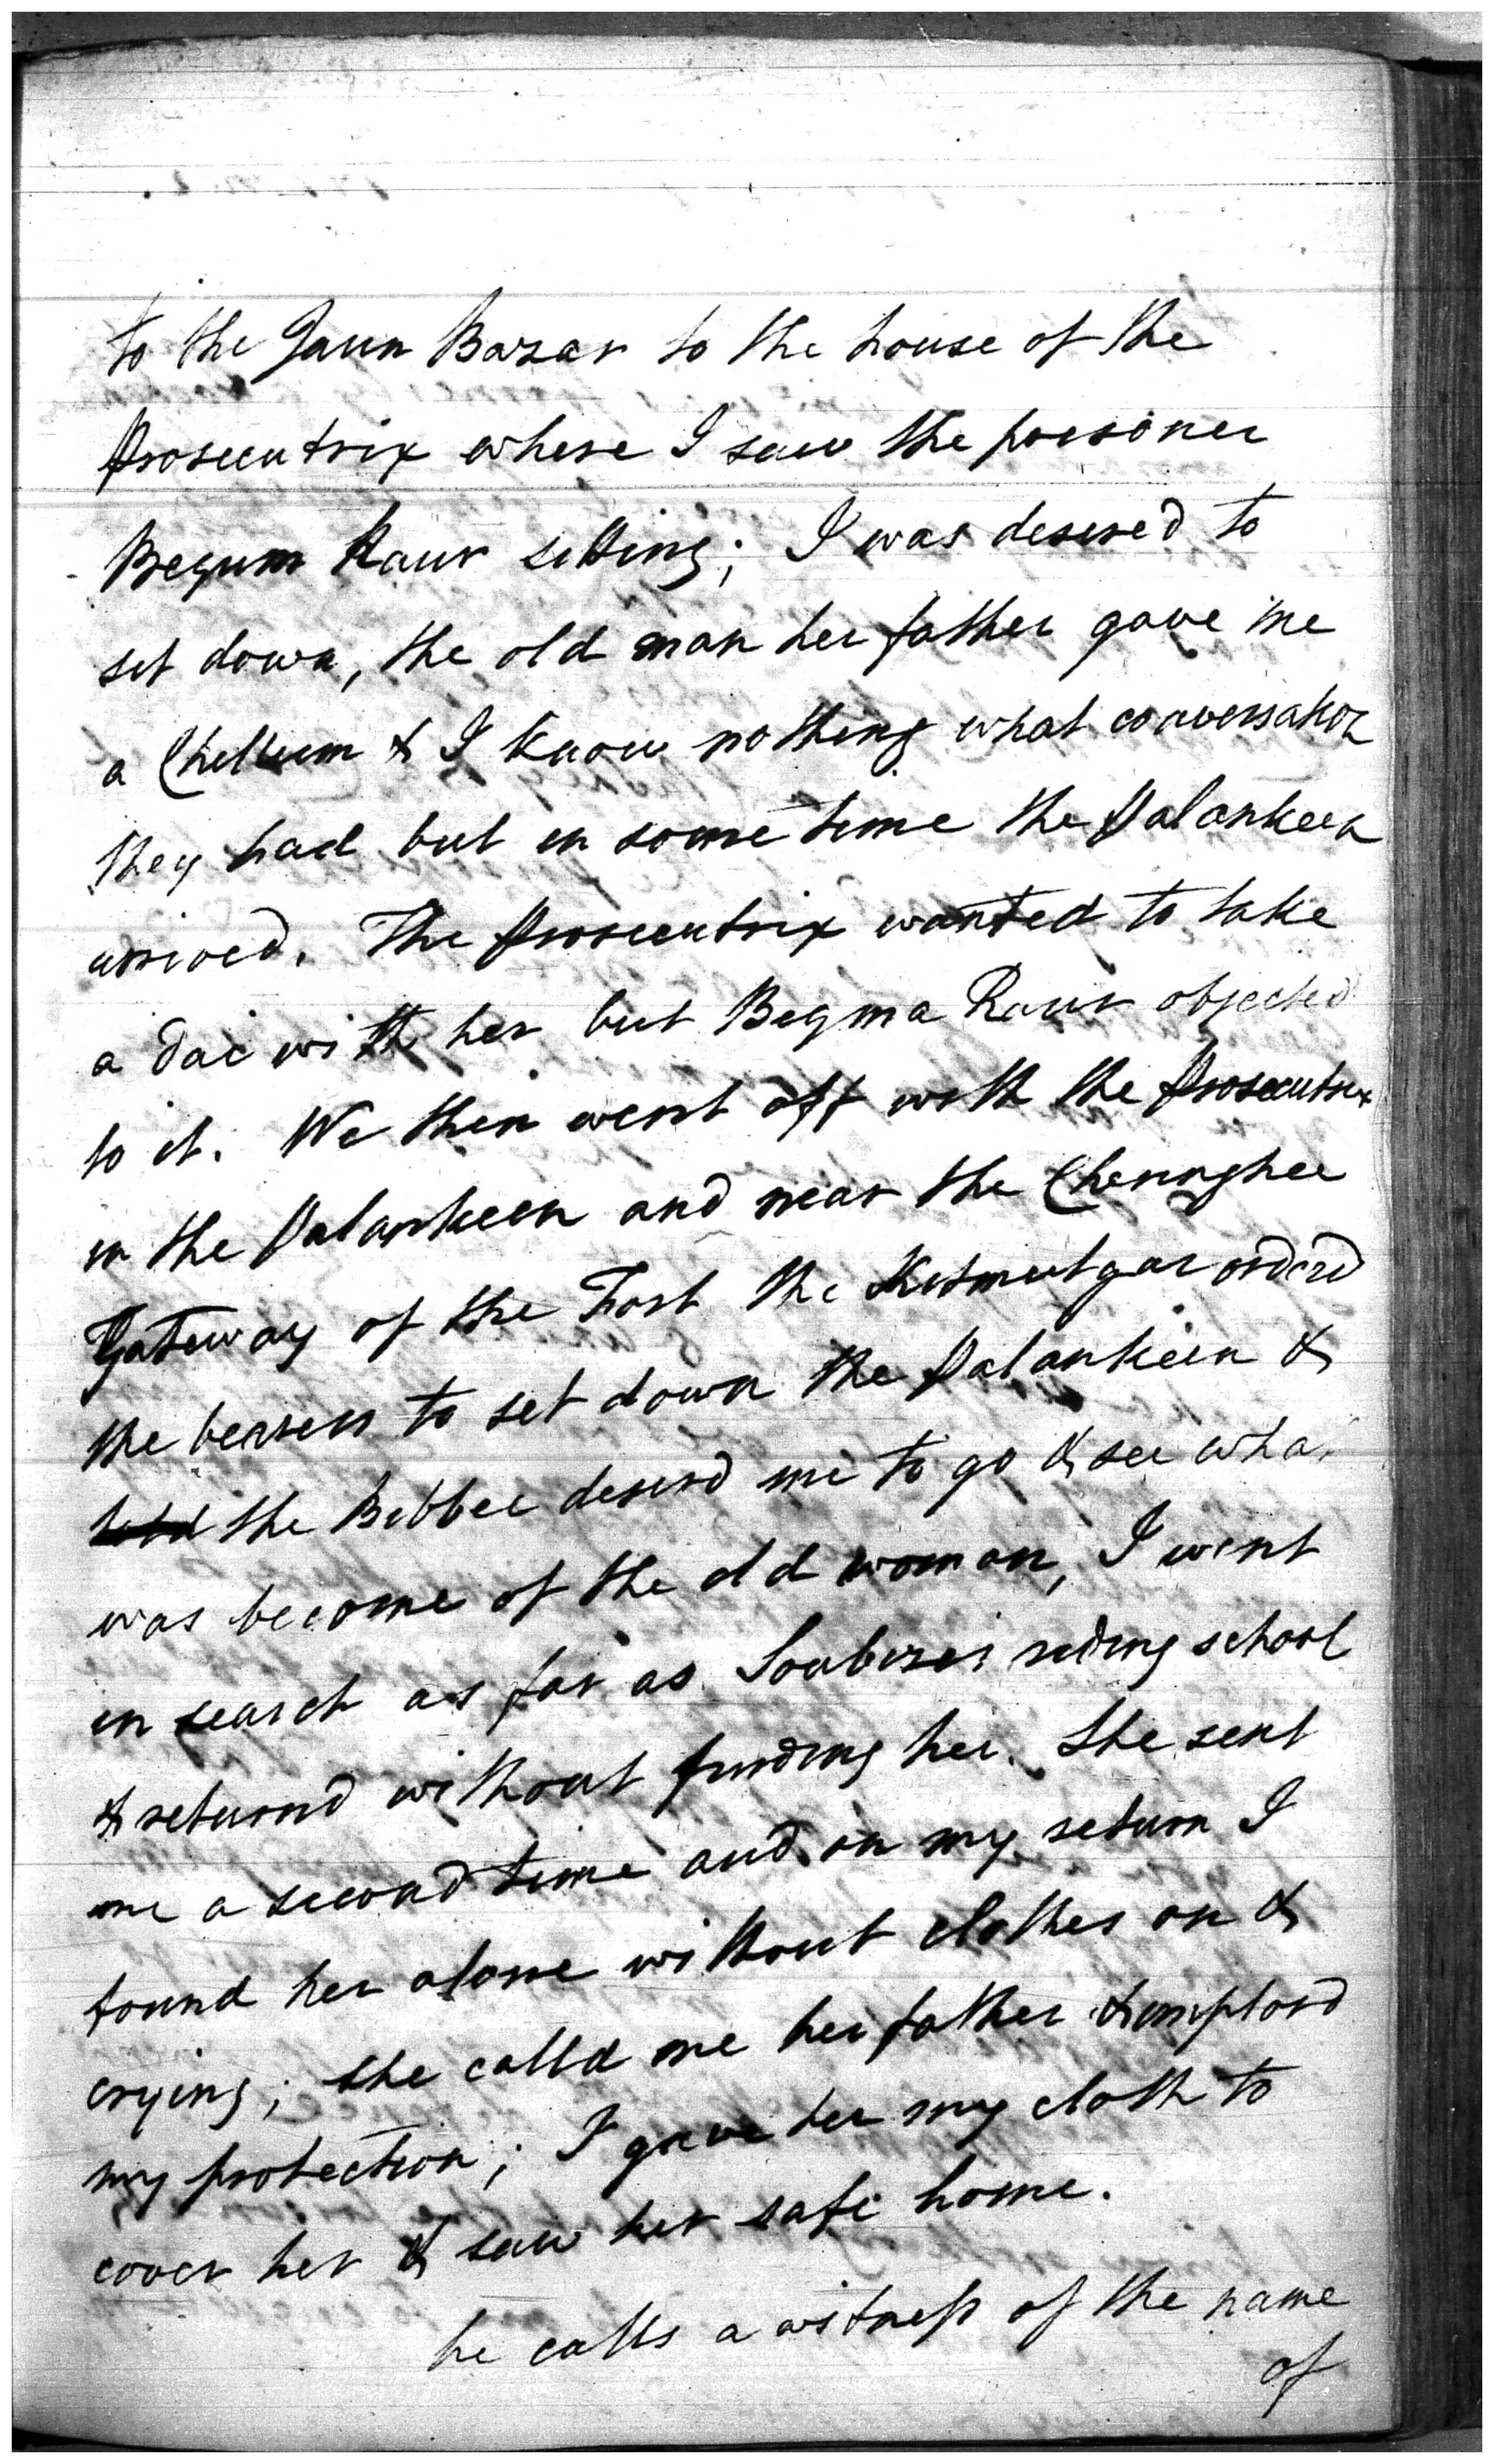 to the Jaun Bazar to the house of the
Prosecutrix where I saw the prisoner
Begum Raur sitting; I was desired to
set down, the old man her father gave me
a Chellum & I know nothing what conversation
they had but in some time the Palankeen
arrived. The Prosecutrix wanted to take
a dai with her but Begma Raur objected
to it. We then went off with the Prosecutrix
in the Palankeen and near the Cheringhee
Gateway of the Fort the Kitmutgar orderd
the bearers to set down the Palankeen &
the Bibbee desird me to go & see what
was become of the old woman, I went
in search as far as Soubize's riding school
& returnd without finding her. She sent
me a second time and on my return I
found her alone without clothes on &
crying; she calld me her father & implord
my protection; I gave her my cloth to
cover her & saw her safe home.
he calls a witness of the name
of